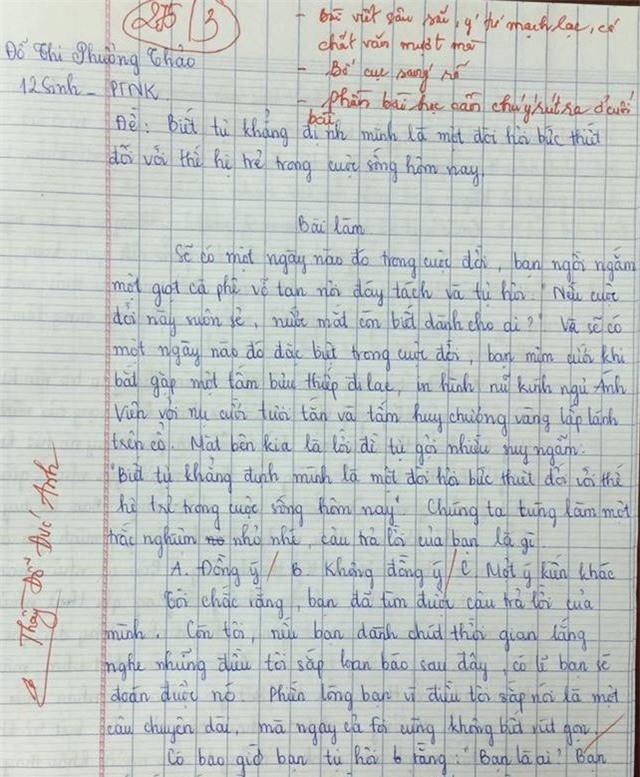 2,75 / 3
- Bài viết sâu sắc, ý tứ mạch lạc, có
chất văn mượt mà
- Bố cục sáng rõ
- Phần bài học cần chú ý rút ra ở cuối
bài
Đỗ Thị Phương Thảo
12 Sinh - PTNK
Đề: Biết tự khẳng định mình là một đòi hỏi bức thiết
đối với thế hệ trẻ trong cuộc sống hôm nay.
Bài làm
Sẽ có một ngày nào đó trong cuộc đời, bạn ngồi ngắm
một giọt cà phê vỡ tan nơi đáy tách và tự hỏi: "Nếu cuộc
đời này suôn sẻ, nước mắt còn biết dành cho ai?" Và sẽ có
một ngày nào đó đặc biệt trong cuộc đời, bạn mỉm cười khi
bắt gặp một tấm bưu thiếp đi lạc, in hình nữ kình ngư Ánh
Viên với nụ cười tươi tắn và tấm huy chương vàng lấp lánh
trên cổ. Mặt bên kia là lời đề tự gợi nhiều suy ngẫm:
"Biết tự khẳng định mình là một đòi hỏi bức thiết đối với thế
hệ trẻ trong cuộc sống hôm nay". Chúng ta từng làm một
trắc nghiệm nho nhỏ, câu trả lời của bạn là gì
A. Đồng ý / B. Không đồng ý / C. Một ý kiến khác
Tôi chắc rằng, bạn đã tìm được câu trả lời của
mình. Còn tôi, nếu bạn dành chút thời gian lắng
nghe những điều tôi sắp loan báo sau đây, có lẽ bạn sẽ
đoán được nó. Phiền lòng bạn vì điều tôi sắp nói là một
câu chuyện dài, mà ngay cả tôi cũng không biết rút gọn.
Có bao giờ bạn tự hỏi rằng: "Bạn là ai? Bạn
Thầy Đỗ Đức Anh